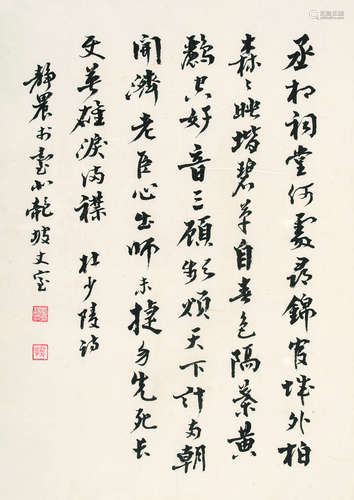 丞相祠堂何處尋錦官城外柏
森〻映堦碧草自春色隔葉黃
鸝空好音三顧頻煩天下計兩朝
開濟老臣心出師未捷身先死長
使英雄淚滿襟 杜少陵詩
靜農於臺北龍坡丈室